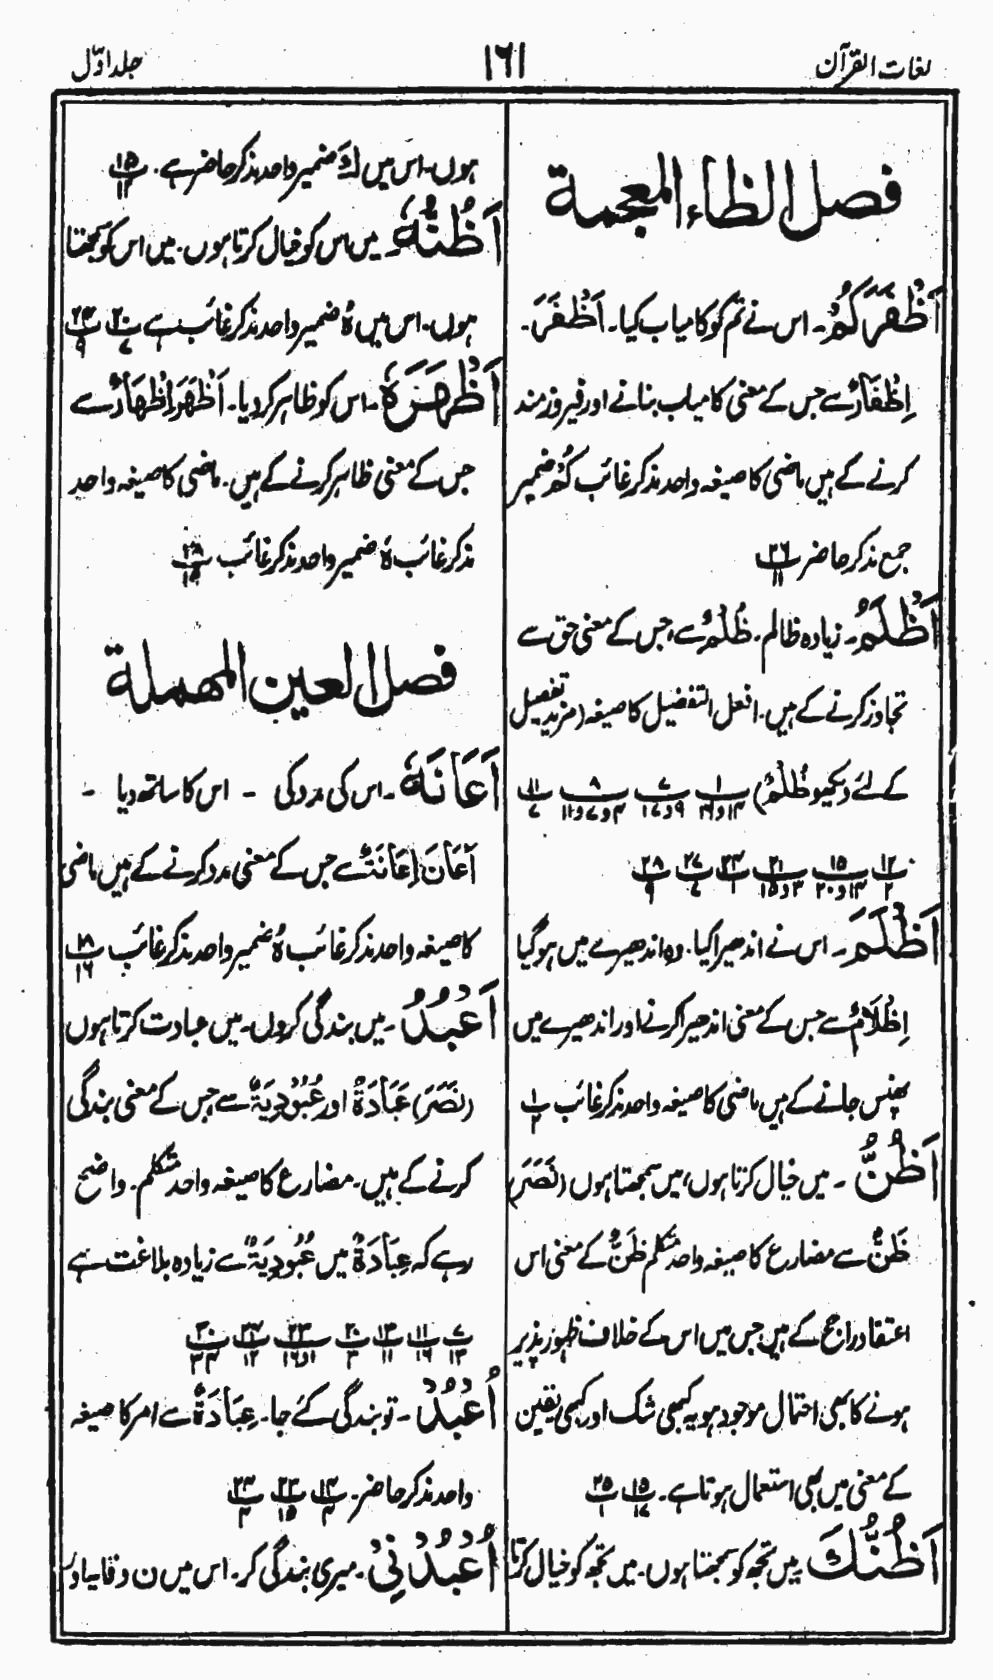 لغات القرآن
١٦١
جلد اوّل
فصل الظاء المعجمة
اَظْفَرَكُمْ۔ اس نے تم کو کامیاب کیا۔ اَظْفَرَ۔
اِظْفَارٌ سے جس کے معنی کامیاب بنانے اور فیروزمند
کرنے کے ہیں ماضی کا صیغہ واحد مذکر غائب كُمْ ضمیر
جمع مذکر حاضر ٢٦/١١
اَظْلَمُ۔ زیادہ ظالم۔ ظُلْمٌ سے، جس کے معنی حق سے
تجاوز کرنے کے ہیں۔ افعل التفضیل کا صیغہ (مزید تفصیل
کے لئے دیکھو ظُلْمٌ) ١/١٤و١٦ ٧/٩و١٧ ٨/٤و٧و١١ ١١/٧
١٢/٢ ١٥/١٤و٢٠ ٢١/٣و١٥ ٢٤/١ ٢٧/٧ ٢٨/٩
اَظْلَمَ۔ اس نے اندھیرا کیا۔ وہ اندھیرے میں ہو گیا
اِظْلَامٌ سے جس کے معنی اندھیرا کرنے اور اندھیرے میں
پھنس جانے کے ہیں ماضی کا صیغہ واحد مذکر غائب ١/٢
اَظُنُّ۔ میں خیال کرتا ہوں، میں سمجھتا ہوں (نَصَرَ)
ظَنٌّ سے مضارع کا صیغہ واحد متکلم ظَنٌّ کے معنی اس
اعتقاد راجح کے ہیں جس میں اس کے خلاف ظہور پذیر
ہونے کا بھی احتمال موجود ہو یہ کبھی شک اور کبھی یقین
کے معنی میں بھی استعمال ہوتا ہے۔ ١٥/١٧ ٢٥/١
اَظُنُّكَ میں تجھ کو سمجھتا ہوں۔ میں تجھ کو خیال کرتا
ہوں۔ اس میں كَ ضمیر واحد مذکر حاضر ہے۔ ١٥/١٢
اَظُنُّهٗ میں اس کو خیال کرتا ہوں۔ میں اس کو سمجھتا
ہوں۔ اس میں هٗ ضمیر واحد مذکر غائب ہے ٢٠/٧ ٢٤/٩
اَظْهَرَهٗ۔ اس کو ظاہر کر دیا۔ اَظْهَرَ اِظْهَارٌ سے
جس کے معنی ظاہر کرنے کے ہیں۔ ماضی کا صیغہ واحد
مذکر غائب هٗ ضمیر واحد مذکر غائب ٢٨/١٩
فصل العین المهملة
اَعَانَهٗ۔ اس کی مدد کی ۔ اس کا ساتھ دیا ۔
اَعَانَ اِعَانَتٌ سے جس کے معنی مدد کرنے کے ہیں ماضی
کا صیغہ واحد مذکر غائب هٗ ضمیر واحد مذکر غائب ١٨/١٦
اَعْبُدُ۔ میں بندگی کروں۔ میں عبادت کرتا ہوں
(نَصَرَ) عِبَادَةٌ اور عُبُوْدِيَّةٌ سے جس کے معنی بندگی
کرنے کے ہیں۔ مضارع کا صیغہ واحد متکلم۔ واضح
رہے کہ عِبَادَةٌ میں عُبُوْدِيَةٌ سے زیادہ بلاغت ہے
٧/١٣ ١١/١٦ ١٣/١١ ٢٠/٣ ٢٣/١و١٦ ٢٤/١٢ ٣٠/٣٤
اُعْبُدْ۔ تو بندگی کئے جا۔ عِبَادَةٌ سے امر کا صیغہ
واحد مذکر حاضر۔ ١٤/٣ ٢٣/١٥ ٢٤/٣
اُعْبُدْنِيْ۔ میری بندگی کر۔ اس میں ن وقایہ اور